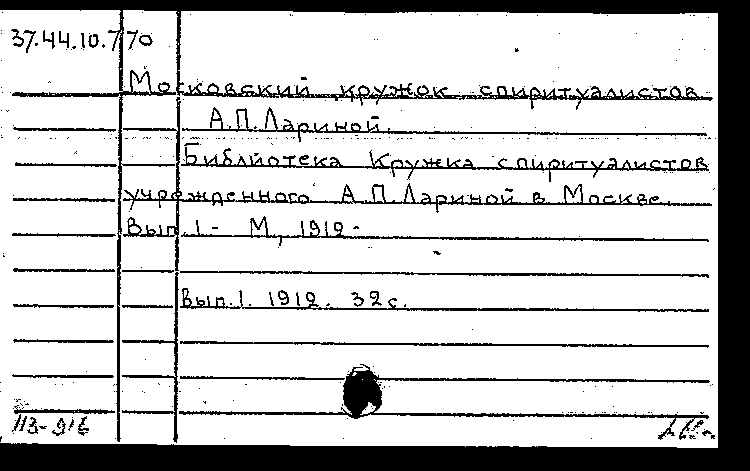 37.44.10.770
Московский кружок спиритуалистов
А.П. Лариной.
Библиотека Кружка спиритуалистов
учрежденного А.П. Лариной в Москве.
Вып. 1 - М., 1912 -
Вып. 1. 1912. 32 с.
113-916